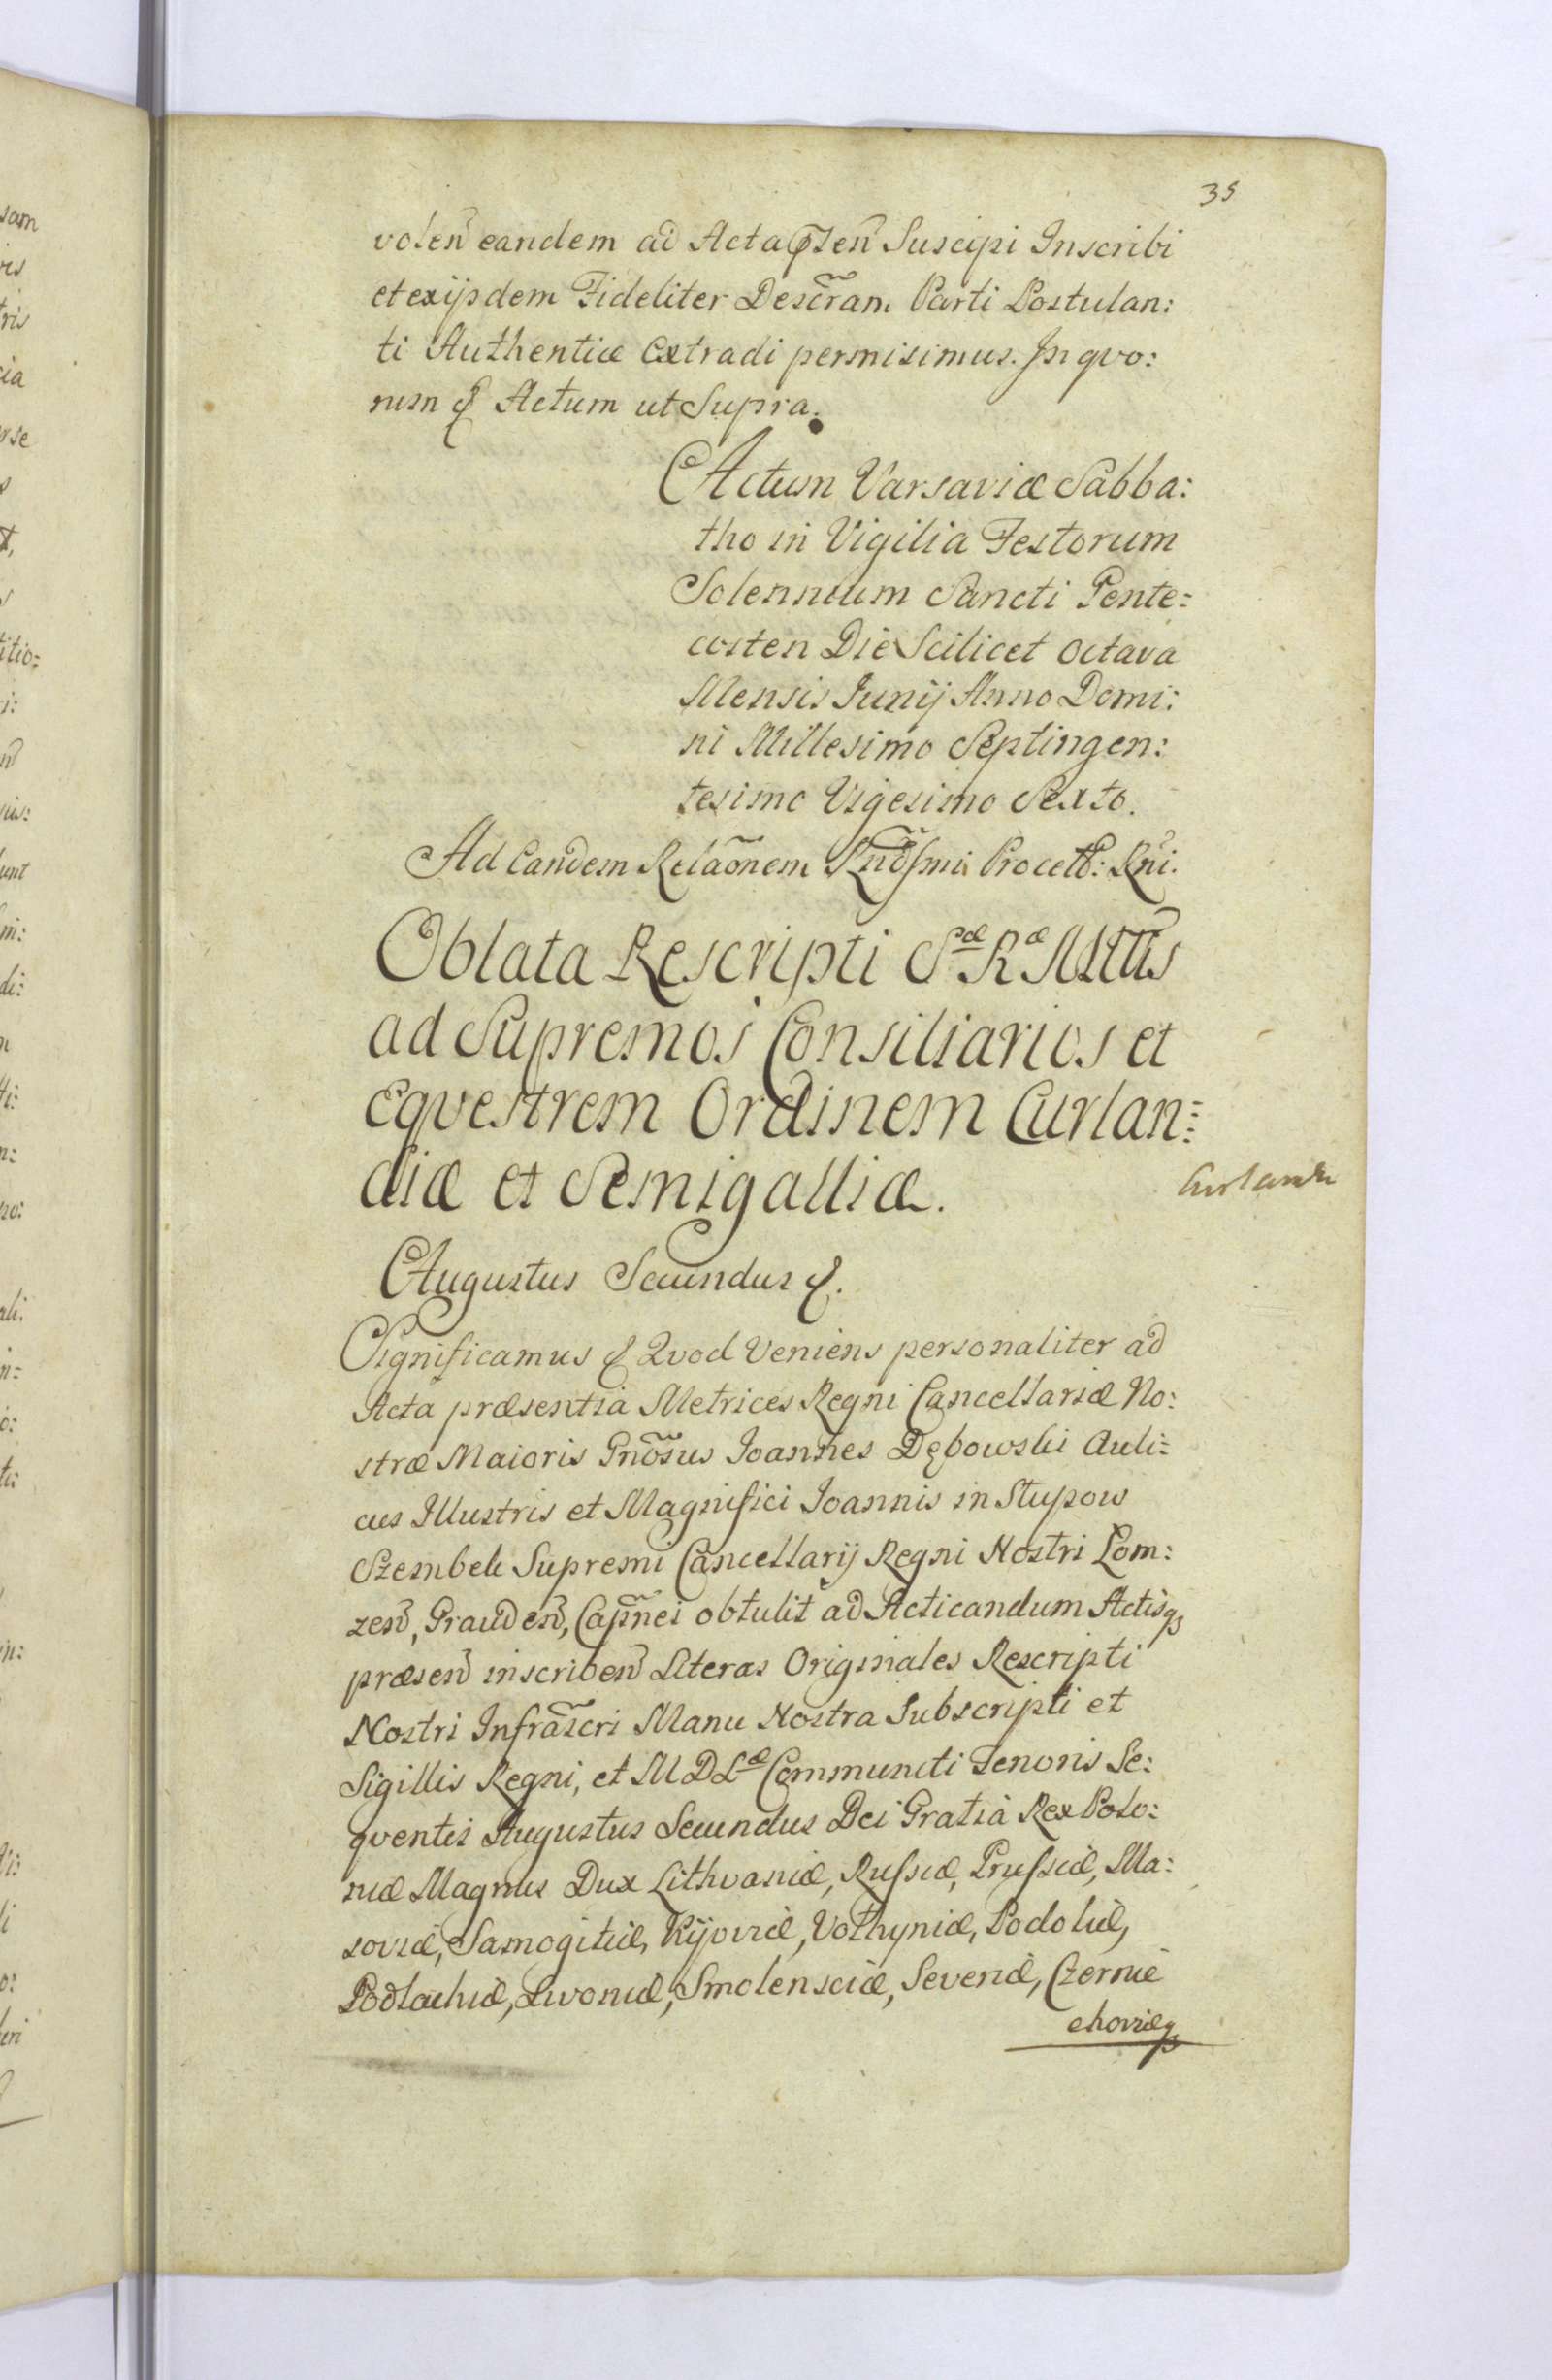 35
volen̄ eandem ad Acta p̄sen̄ Suscipi Inscribi
et exijsdem Fideliter Descr̃am Parti Postulan:
ti Authentice Extradi permisimus. In quo:
rum & Actum ut Supra.
Actum Varsaviæ Sabba:
tho in Vigilia Festorum
Solennium Sancti Pente=
costen Die Scilicet octava
Mensis Junij Anno Domi:
ni Millesimo Septingen:
tesimo Vigesimo Sexto.
Ad Eandem Rela͠onem Rndssmi Procell: Rni.
Oblata Rescripti Sæ Ræ Mttis
ad Supremos Consiliarios et
Eqvestrem Ordinem Curlan=
diæ et Semigalliæ.
Curlandia
Augustus Secundus &.
Significamus & Qvod Veniens personaliter ad
Acta præsentia Metrices Regni Cancellariæ No:
stræ Maioris Gn͠osus Joannes Dębowski Auli=
cus Illustris et Magnifici Joannis in Słupow
Szembek Supremi Cancellarij Regni Nostri Lom:
zen̄, Grauden̄, Cap̃nei obtulit ad Acticandum Actisq3
præsen̄ inscriben̄ Literas Originales Rescripti
Nostri Infra͠scri Manu Nostra Subscripti et
Sigillis Regni, et M D Læ Communiti Tenoris Se:
qventis Augustus Secundus Dei Gratia Rex Polo:
niæ Magnus Dux Lithvaniæ, Russiæ, Prussiæ, Ma:
soviæ, Samogitiæ, Kijoviæ, Volhyniæ, Podoliæ,
Podlachiæ, Livoniæ, Smolensciæ, Severiæ, Czernie
choviæq3